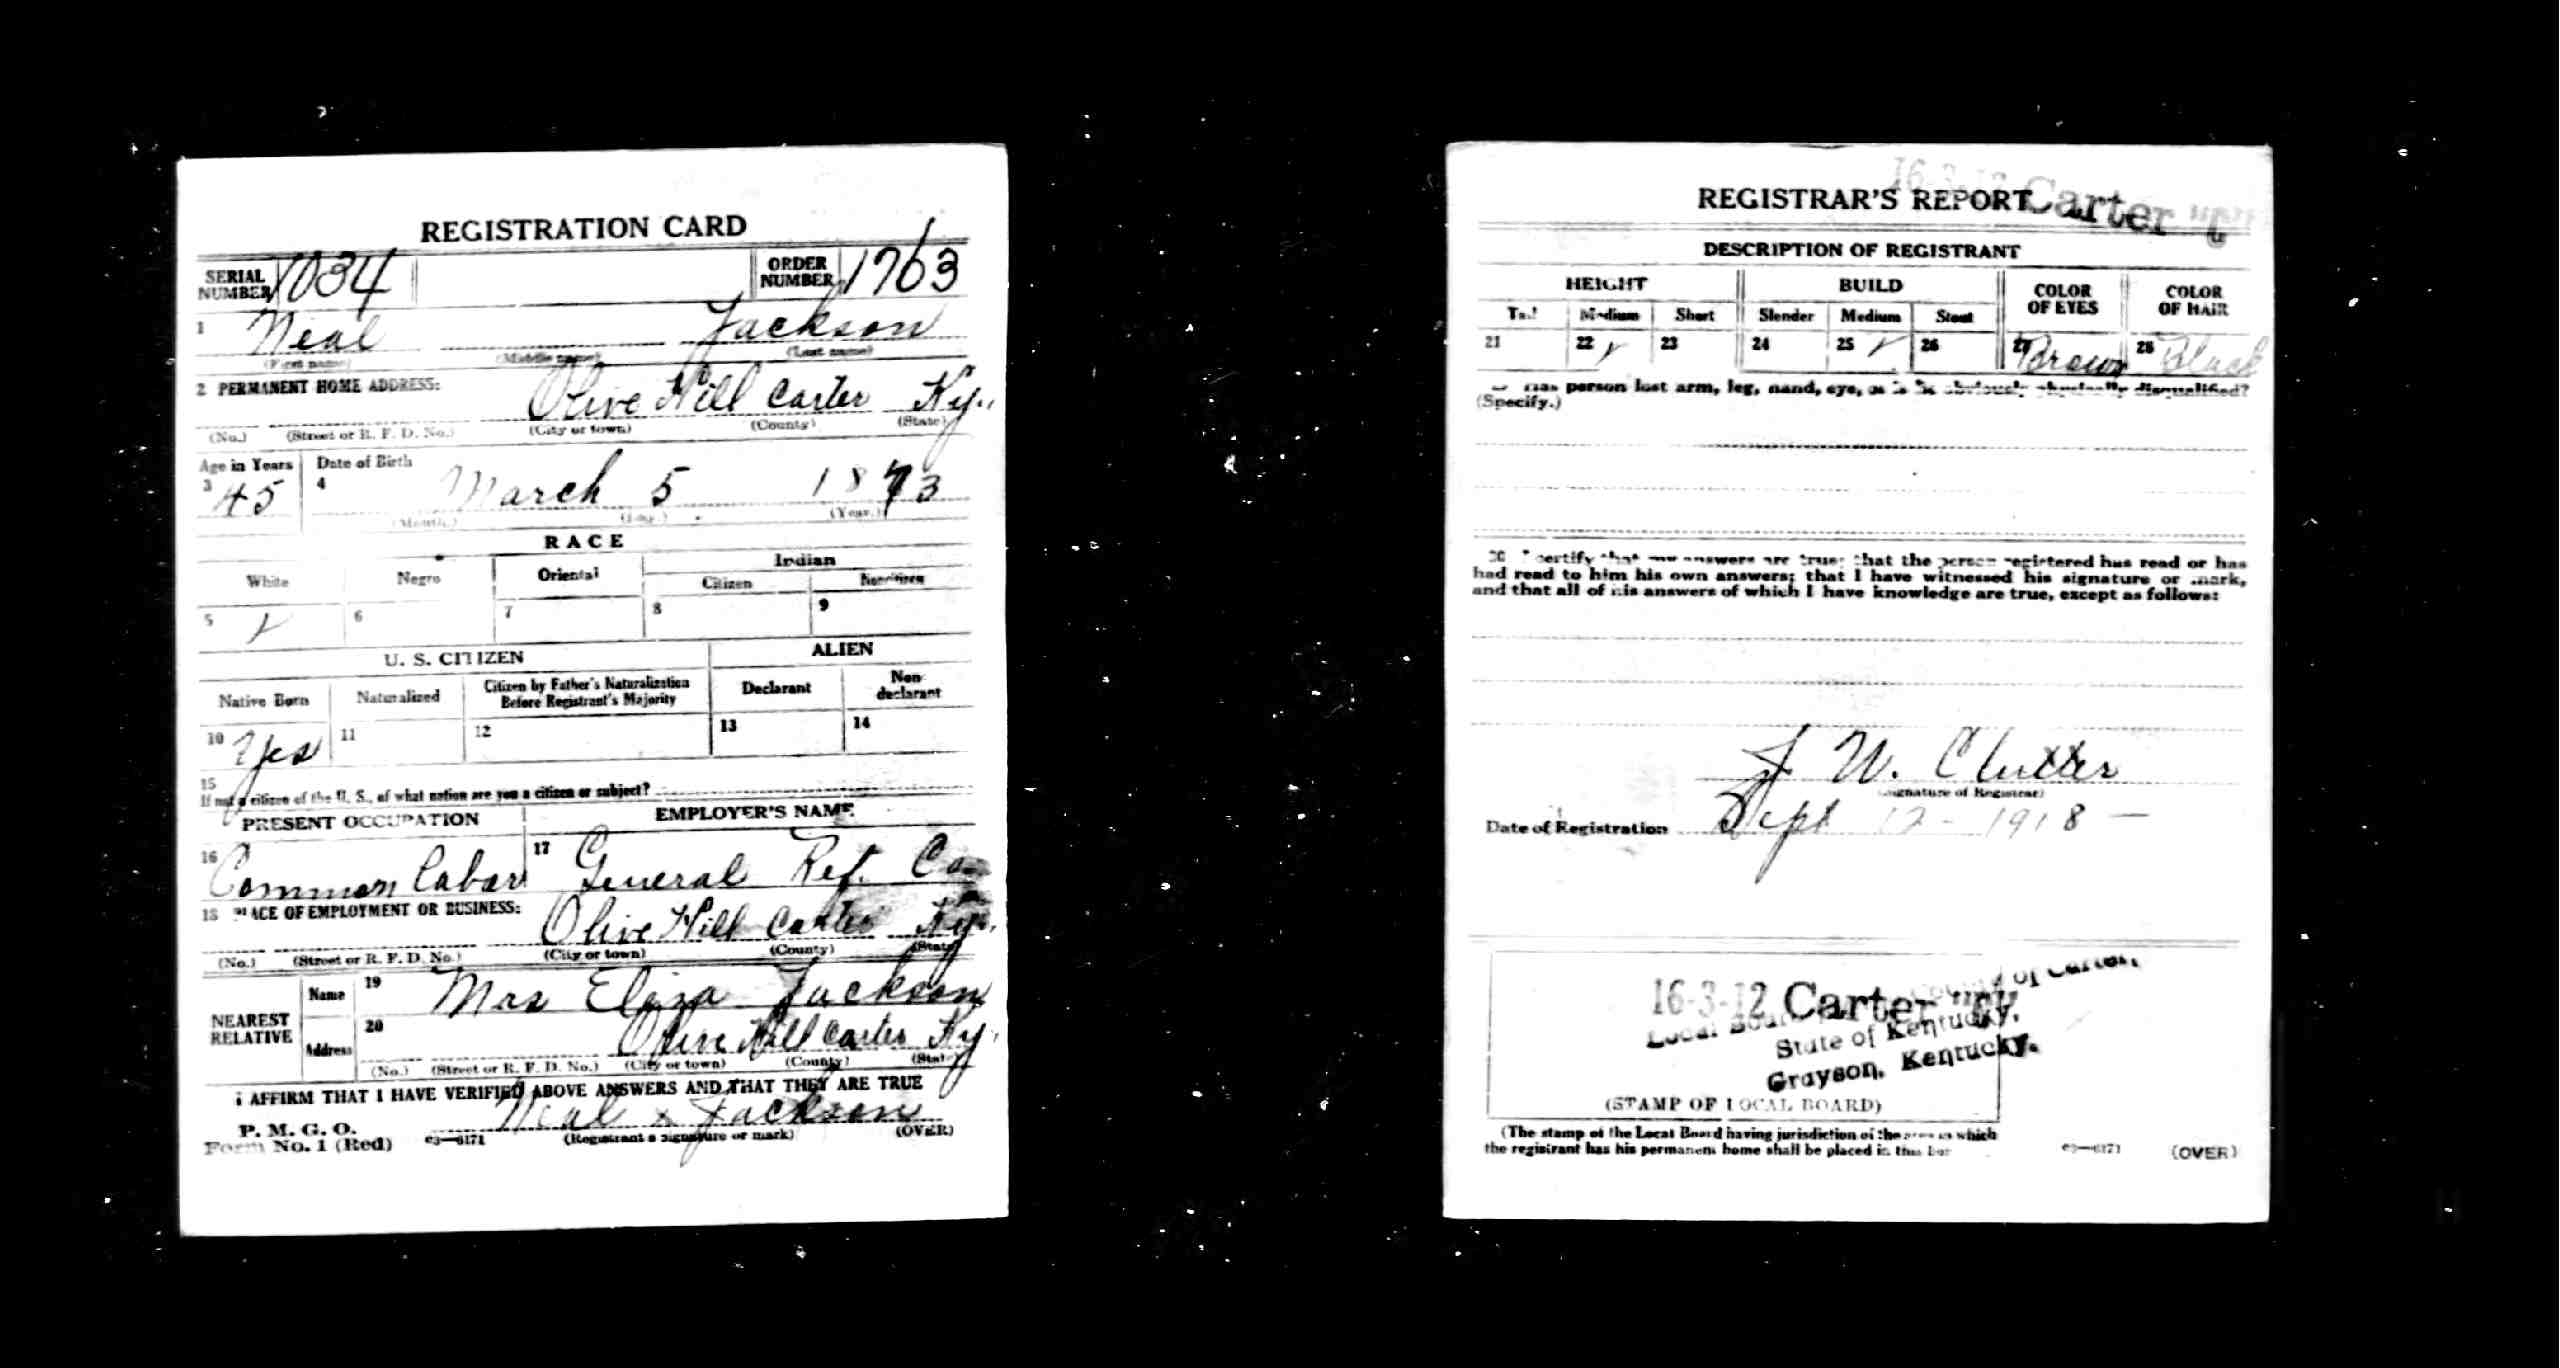 REGISTRATION CARD
SERIAL NUMBER 1034 ORDER NUMBER 1763
1 Neal Jackson
(First name) (Middle name) (Last name)
2 PERMANENT HOME ADDRESS:
Olive Hill Carter Ky.
(No.) (Street or R. F. D. No.) (City or town) (County) (State)
Age in Years Date of Birth
3 45 4 March 5 1873
(Month.) (Day.) (Year.)
RACE
White Negro Oriental Indian
Citizen Noncitizen
5 6 7 8 9
U. S. CITIZEN ALIEN
Native Born Naturalized Citizen by Father's Naturalization Before Registrant's Majority Declarant Non-declarant
10 Yes 11 12 13 14
15
If not a citizen of the U. S., of what nation are you a citizen or subject?
PRESENT OCCUPATION EMPLOYER'S NAME
16 Common Labor 17 General Ref. Co
18 PLACE OF EMPLOYMENT OR BUSINESS:
Olive Hill Carter Ky.
(No.) (Street or R. F. D. No.) (City or town) (County) (State)
NEAREST RELATIVE Name 19 Mrs Eliza Jackson
Address 20 Olive Hill Carter Ky.
(No.) (Street or R. F. D. No.) (City or town) (County) (State)
I AFFIRM THAT I HAVE VERIFIED ABOVE ANSWERS AND THAT THEY ARE TRUE
Neal x Jackson
P. M. G. O.
Form No. 1 (Red) 03—6171 (Registrant's signature or mark) (OVER)
16-3-12 Carter "C"
REGISTRAR'S REPORT
DESCRIPTION OF REGISTRANT
HEIGHT BUILD COLOR OF EYES COLOR OF HAIR
Tall Medium Short Slender Medium Stout
21 22 23 24 25 26 27 Brown 28 Black
Has person lost arm, leg, hand, eye, or is he obviously physically disqualified?
(Specify.)
30 I certify that my answers are true; that the person registered has read or has
had read to him his own answers; that I have witnessed his signature or mark,
and that all of his answers of which I have knowledge are true, except as follows:
J. W. Clutter
(Signature of Registrar)
Date of Registration Sept 12 - 1918 —
16-3-12 Carter
Local Board County of Carter,
State of Kentucky,
Grayson, Kentucky.
(STAMP OF LOCAL BOARD)
(The stamp of the Local Board having jurisdiction of the area in which
the registrant has his permanent home shall be placed in this box
03—6171 (OVER)